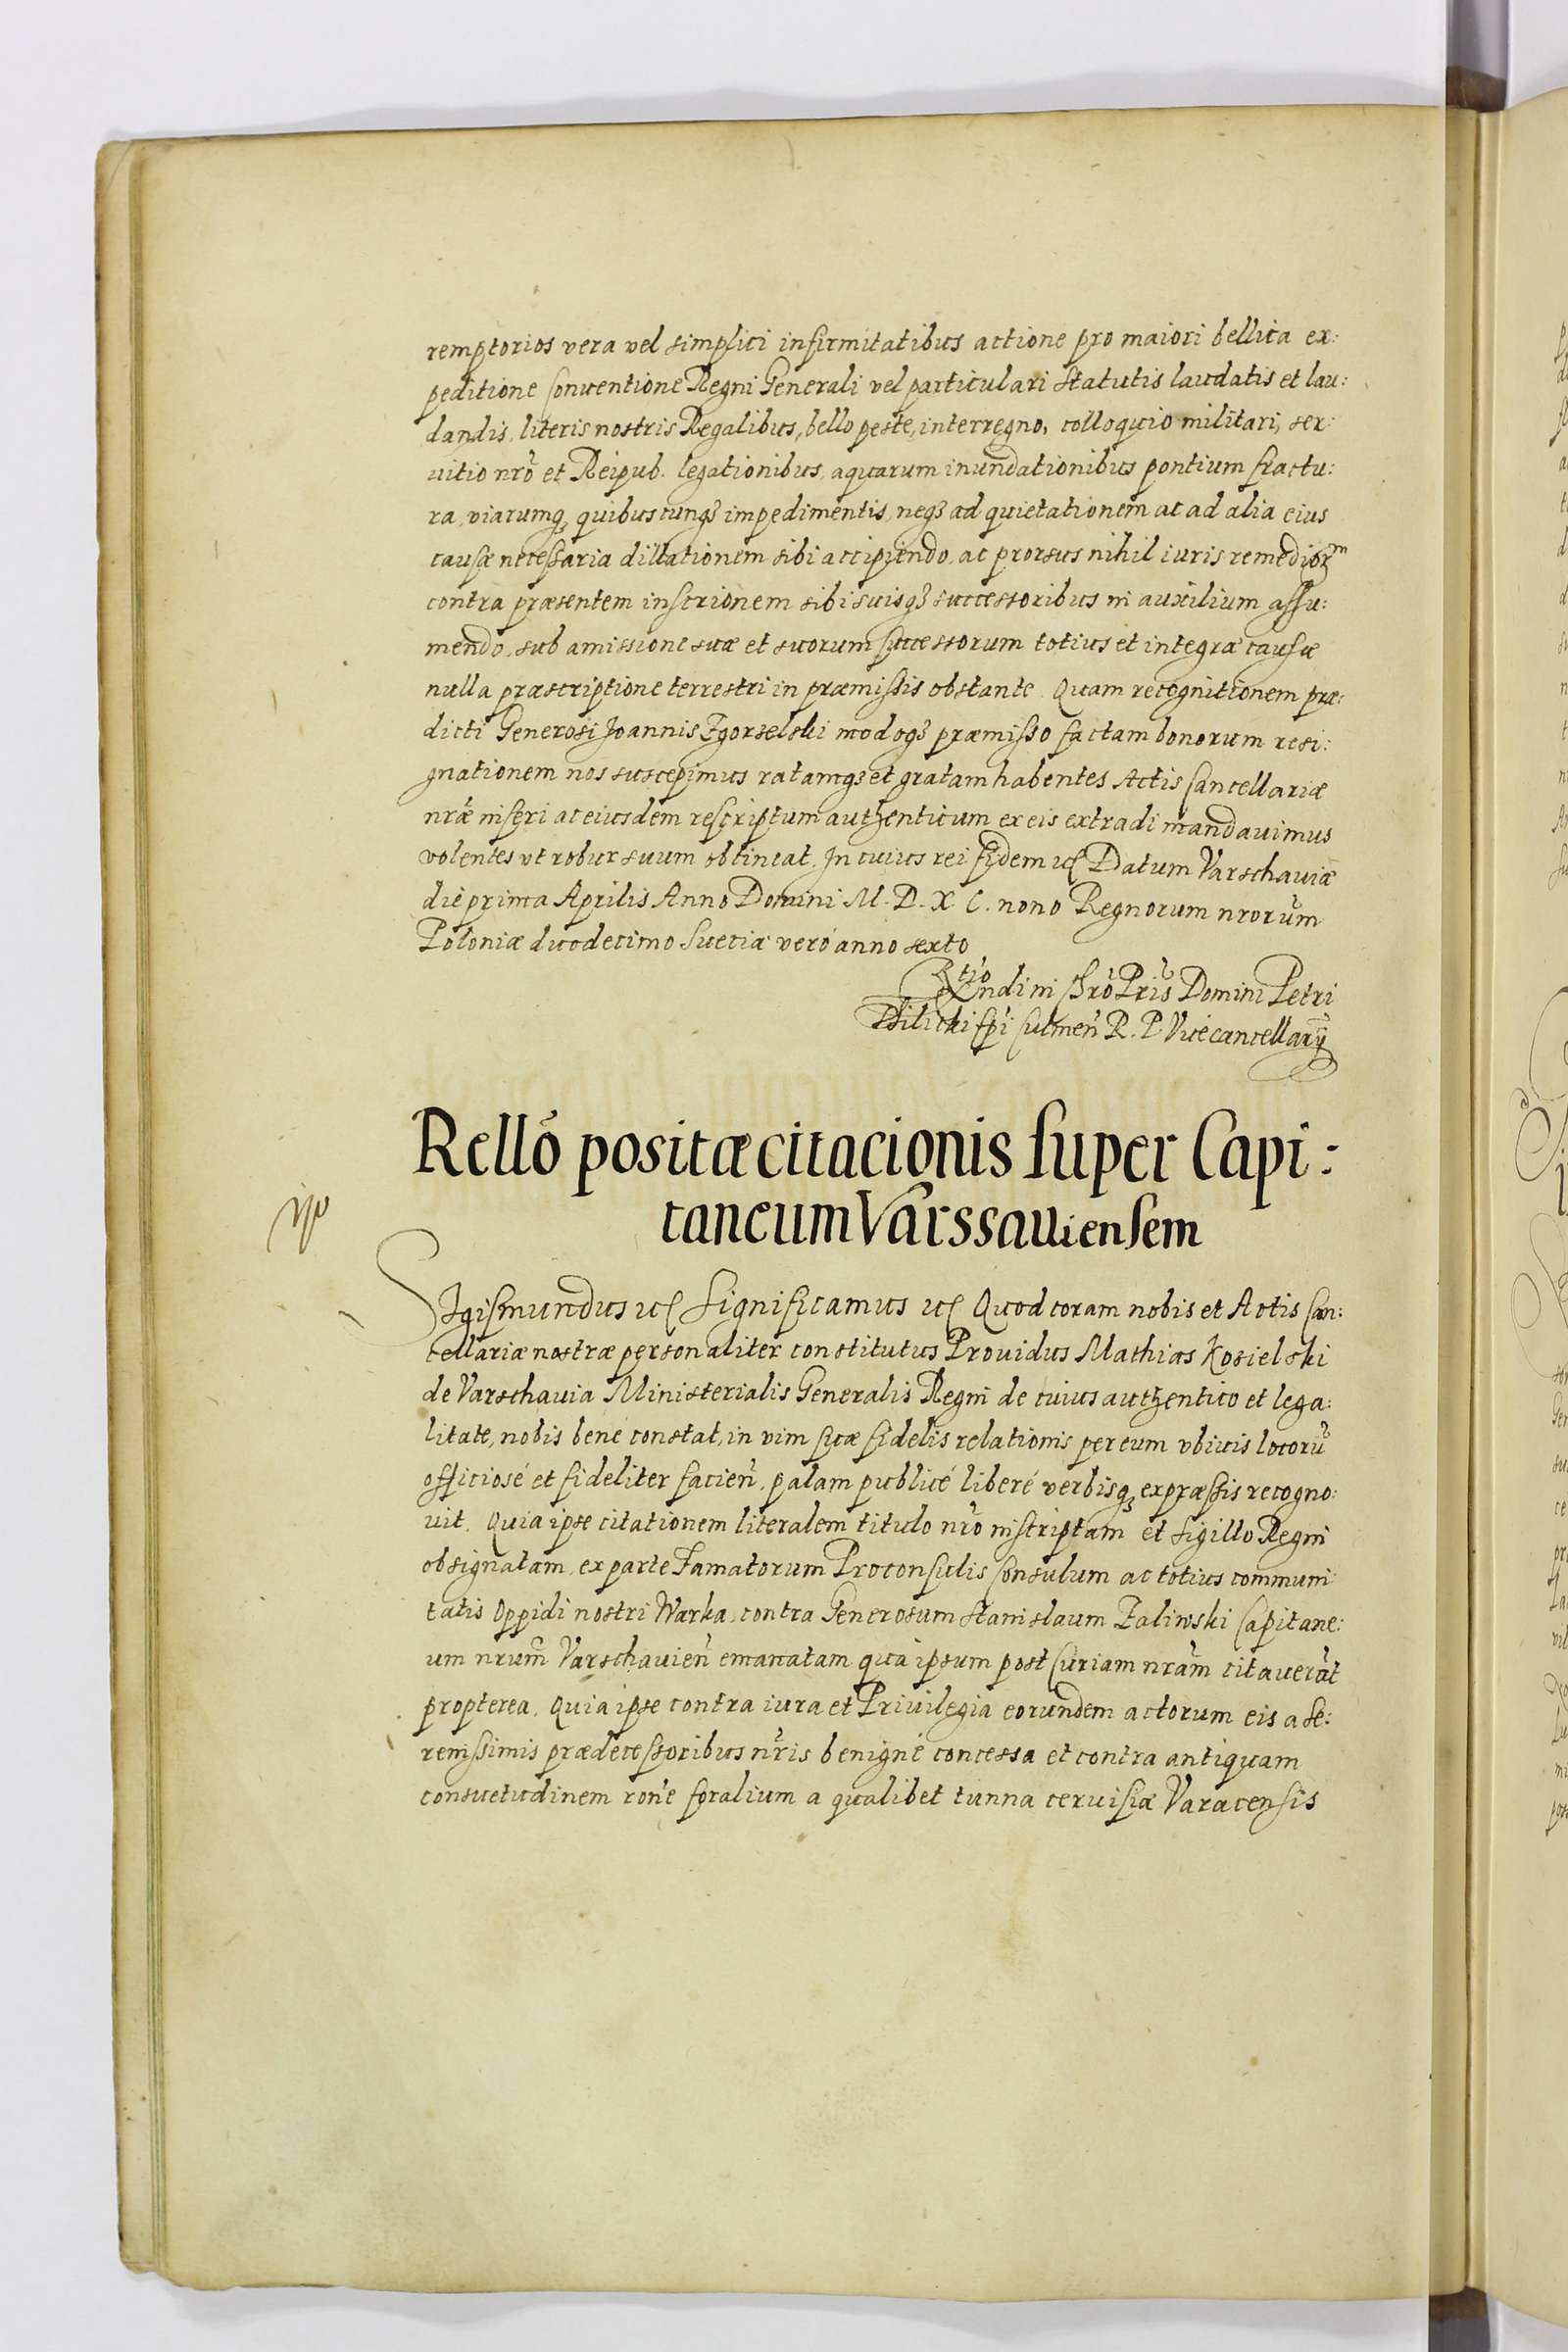 remptorios vera vel simplici infirmitatibus actione pro maiori bellica ex:
peditione Conventione Regni Generali vel particulari statutis laudatis et lau:
dandis, literis nostris Regalibus, bello peste, interregno, colloquio militari, ser:
uitio nro et Reipub. legationibus, aquarum inundationibus pontium fractu:
ra, viarumq quibuscunq impedimentis, neq ad quietationem ac ad alia eius
causæ necessaria dillationem sibi accipiendo, ac prorsus nihil iuris remediorm
contra præsentem inscrionem sibi suisq successoribus in auxilium assu:
mendo, sub amissione suæ et suorum successorum totius et integræ causæ
nulla præscriptione terrestri in præmissis obstante. Quam recognitionem præ:
dicti Generosi Joannis Zgorzelski modoq præmisso factam bonorum resi:
gnationem nos suscepimus ratamq et gratam habentes Actis Cancellariæ
nræ inseri ac eiusdem rescriptum authenticum ex eis extradi mandauimus
volentes vt robur suum obtineat. In cuius rei fidem etc Datum Varschauiæ
die prima Aprilis Anno Domini M. D. X C. nono Regnorum nrorum
Poloniæ duodecimo Sueciæ verò anno sexto
Rtio Rndi in Chro Pris Domini Petri
Tilicki Epi Culmen R. P. Vicecancellarij
Rello positæ citacionis super Capi:
taneum Varssauiensem
Sigismundus etc Significamus etc Quod coram nobis et Actis Can:
cellariæ nostræ personaliter constitutus Prouidus Mathias Kosielski
de Varschauia Ministerialis Generalis Regni de cuius authentico et lega:
litate, nobis bene constat, in vim suæ fidelis relationis per eum vbiuis locoru
officiosé et fideliter facien, palam publicé liberé verbisq expræssis recogno:
uit. Quia ipse citationem literalem titulo nro inscriptam et sigillo Regni
obsignatam, ex parte Famatorum Proconsulis Consulum ac totius communi
tatis Oppidi nostri Warka, contra Generosum Stanislaum Zaliwski Capitane:
um nrum Varschauien emanatam qua ipsum post Curiam nram citauerat
propterea, Quia ipse contra iura et Priuilegia eorundem actorum eis a Se:
renissimis prædecessoribus nris benigné concessa et contra antiquam
consuetudinem rone foralium a qualibet tunna ceruisiæ Varacensis